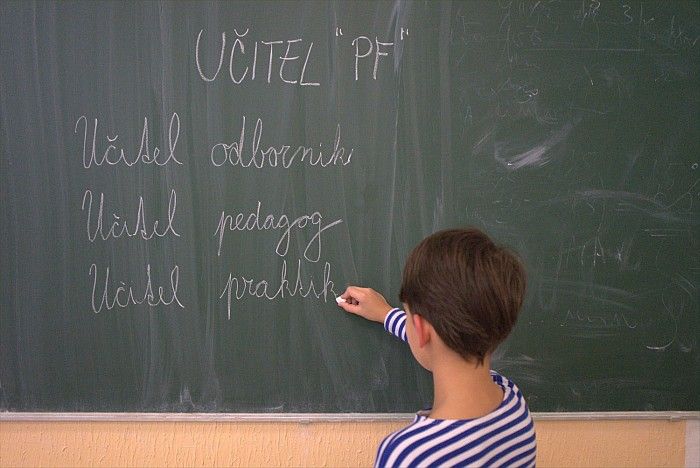 UČITEL "PF"
Učitel odborník
Učitel pedagog
Učitel praktik